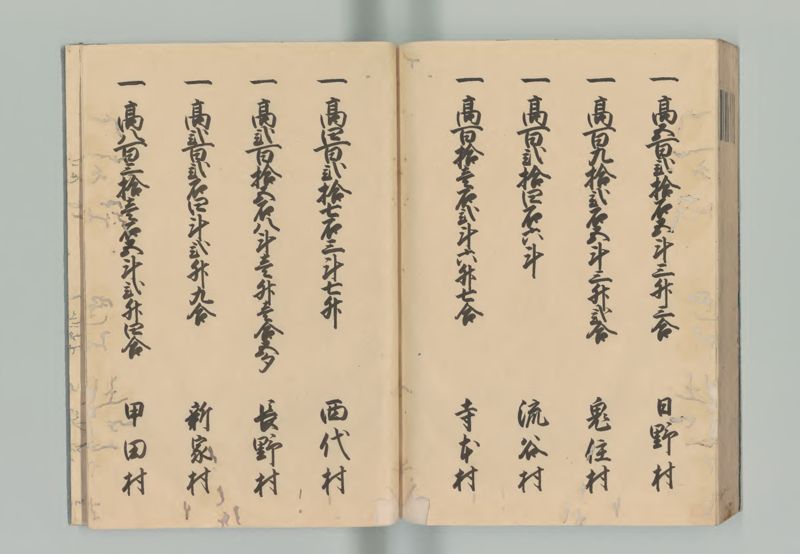 一高五百弐拾石五斗三升三合 日野村
一高百九拾弐石五斗三升弐合 鬼住村
一高百弐拾四石六斗 流谷村
一高百拾壱石弐斗六升七合 寺本村
一高四百弐拾七石三斗七升 西代村
一高弐百拾五石八斗壱升壱合五夕 長野村
一高弐百弐石四斗弐升九合 新家村
一高八百三拾壱石五斗弐升四合 甲田村